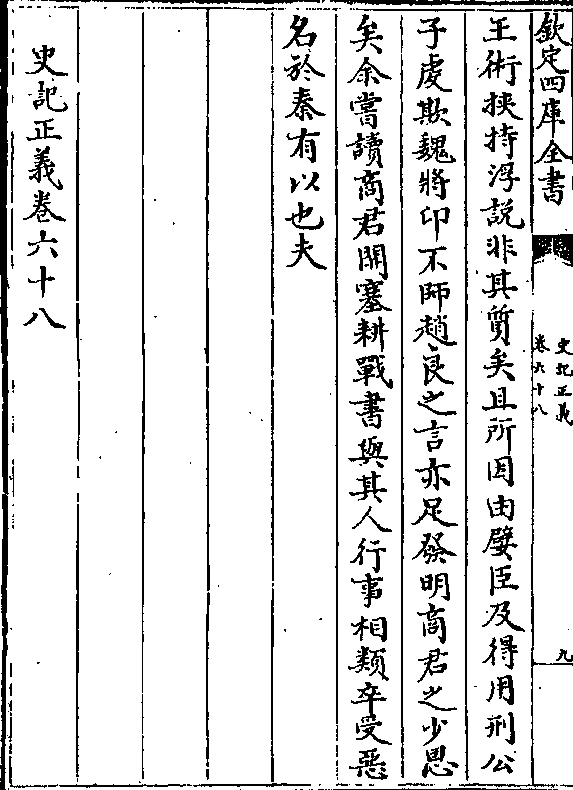 欽定四庫全書
史記正義
卷六十八
九
王術挾持浮説非其質矣且所因由嬖臣及得用刑公
子虔欺魏將卬不師趙良之言亦足發明商君之少恩
矣余嘗讀商君開塞耕戰書與其人行事相類卒受惡
名於秦有以也夫
史記正義卷六十八